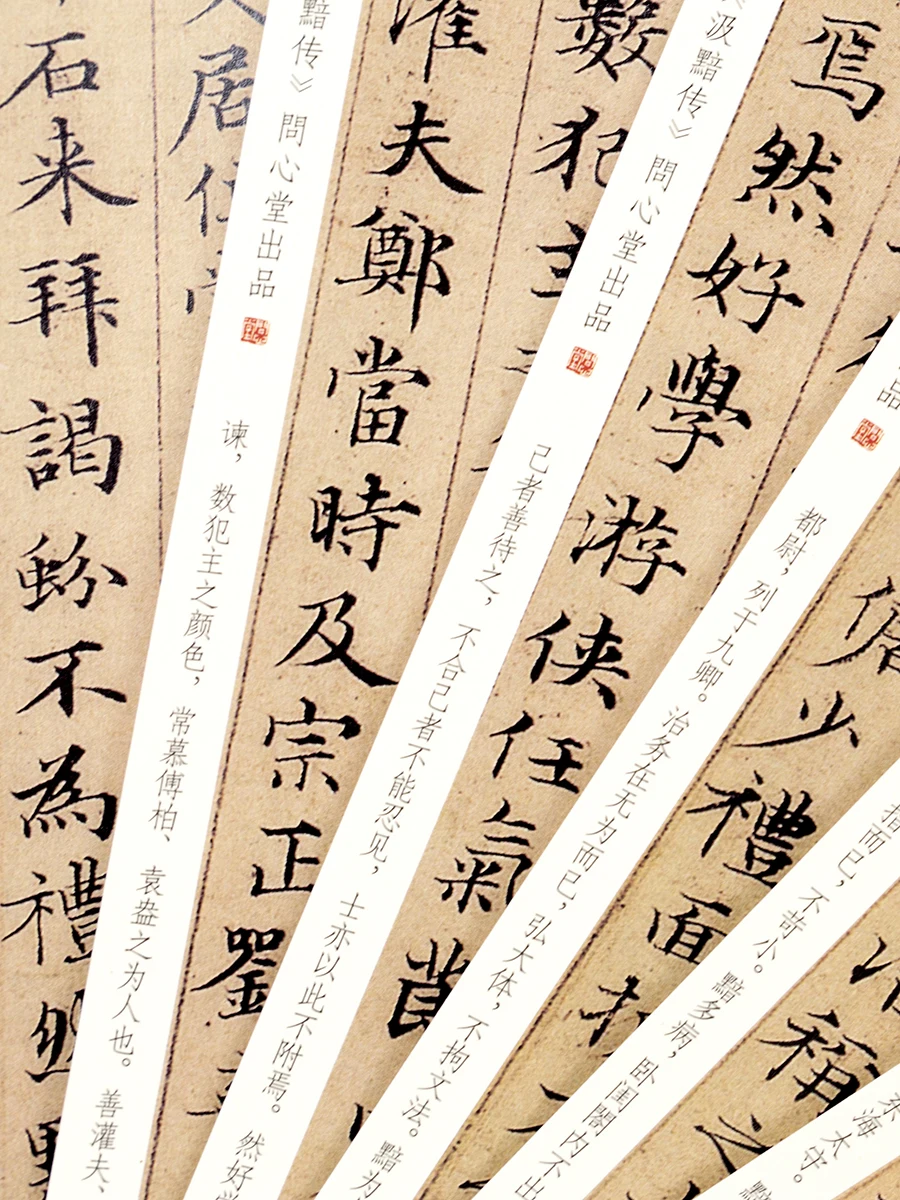 石来拜謁蚡不為禮然
居位
黯传》 問心堂出品
谏，数犯主之颜色，常慕傅柏、袁盎之为人也。善灌夫、
灌夫鄭當時及宗正劉
數犯主
汲黯传》 問心堂出品
己者善待之，不合己者不能忍见，士亦以此不附焉。然好学
焉然好學游俠任氣節
品
都尉，列于九卿。治务在无为而已，弘大体，不拘文法。黯为
倨少禮面折
指而已，不苛小。黯多病，卧闺閣内不出
稱之
东海太守。黯